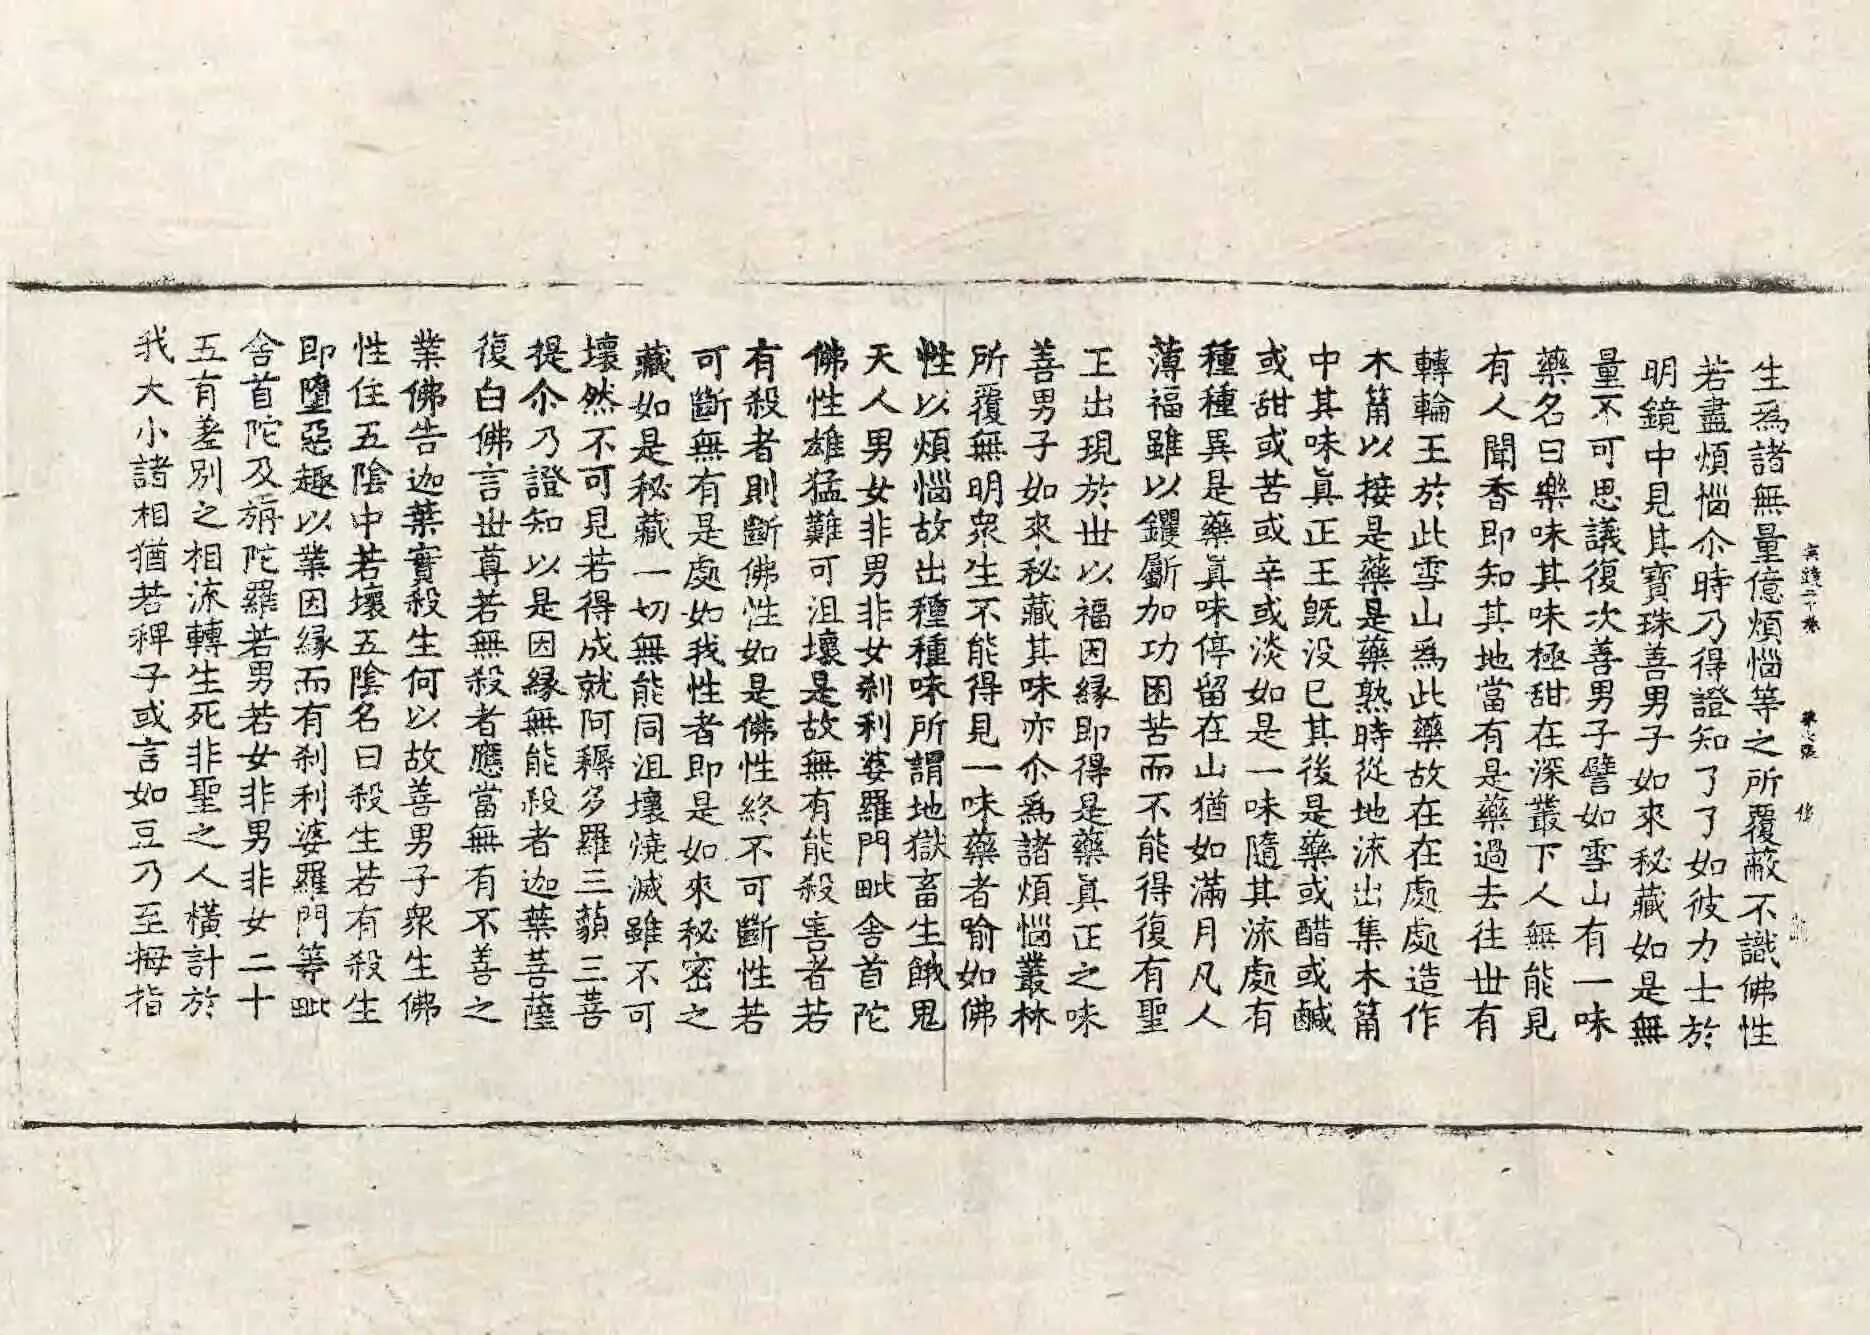 生爲諸無量億煩惱等之所覆蔽不識佛性
若盡煩惱尒時乃得證知了了如彼力士於
明鏡中見其寶珠善男子如來秘藏如是無
量不可思議復次善男子譬如雪山有一味
藥名曰樂味其味極甜在深叢下人無能見
有人聞香即知其地當有是藥過去往世有
轉輪王於此雪山爲此藥故在在處處造作
木筩以接是藥是藥熟時從地流出集木筩
中其味眞正王旣没已其後是藥或醋或鹹
或甜或苦或辛或淡如是一味隨其流處有
種種異是藥眞味停留在山猶如滿月凡人
薄福雖以钁斸加功困苦而不能得復有聖
王出現於世以福因緣即得是藥眞正之味
善男子如來秘藏其味亦尒爲諸煩惱叢林
所覆無明衆生不能得見一味藥者喻如佛
性以煩惱故出種種味所謂地獄畜生餓鬼
天人男女非男非女刹利婆羅門毗舍首陀
佛性雄猛難可沮壞是故無有能殺害者若
有殺者則斷佛性如是佛性終不可斷性若
可斷無有是處如我性者即是如來秘密之
藏如是秘藏一切無能同沮壞燒滅雖不可
壞然不可見若得成就阿耨多羅三藐三菩
提尒乃證知以是因緣無能殺者迦葉菩薩
復白佛言世尊若無殺者應當無有不善之
業佛告迦葉實殺生何以故善男子衆生佛
性住五陰中若壞五陰名曰殺生若有殺生
即墮惡趣以業因緣而有刹利婆羅門等毗
舍首陀及旃陀羅若男若女非男非女二十
五有差別之相流轉生死非聖之人橫計於
我大小諸相猶若稗子或言如豆乃至拇指